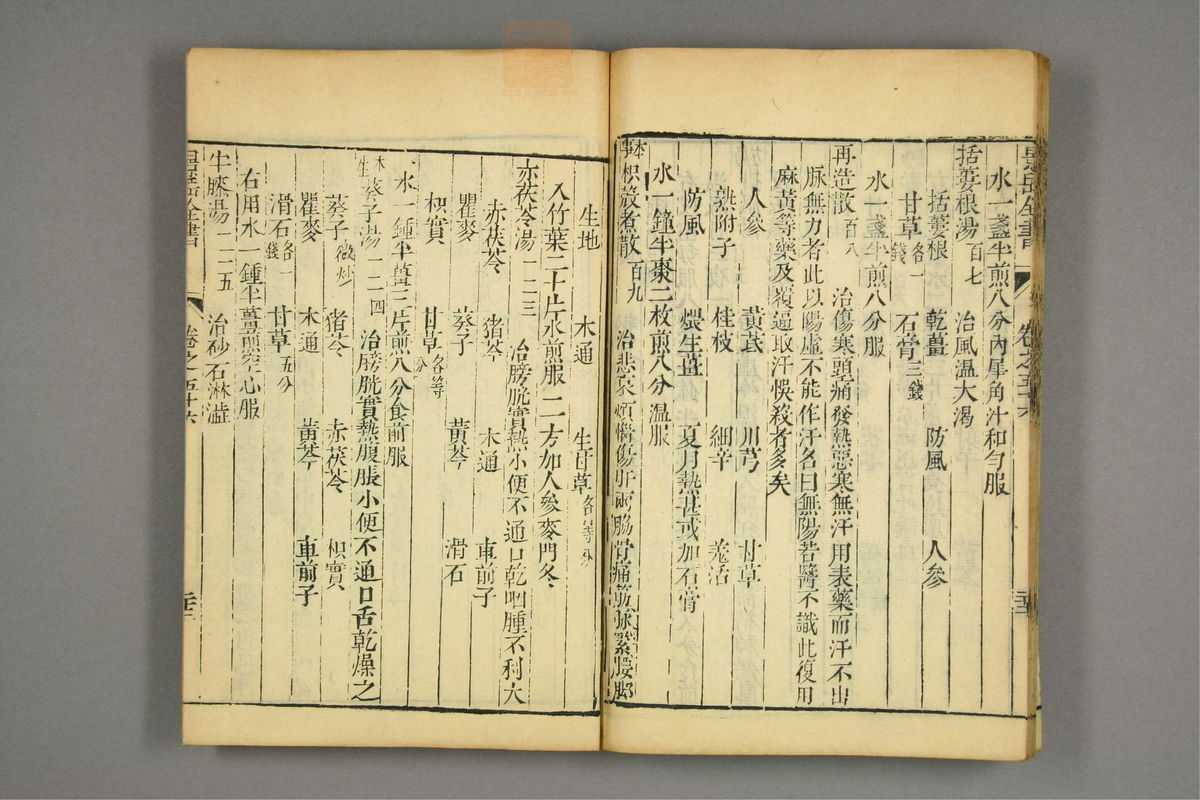 景岳全書 卷之五十六
水一盞半煎八分內犀角汁和勻服
括蔞根湯百七 治風溫大渴
括蔞根 乾薑 防風 人參
甘草各一錢 石膏三錢
水一盞半煎八分服
再造散百八 治傷寒頭痛發熱惡寒無汗用表藥而汗不出
脉無力者此以陽虛不能作汗名曰無陽若醫不識此復用
麻黃等藥及覆逼取汗悞殺者多矣
人參 黃芪 川芎 甘草
熟附子 桂枝 細辛 羗活
防風 煨生薑 夏月熱甚或加石膏
水一鐘半棗二枚煎八分溫服
本事枳殼煮散百九 治悲哀煩惱傷肝兩脇骨痛筋脉緊腰腳
生地 木通 生甘草各等分
入竹葉二十片水煎服 二方加人參麥門冬
赤茯苓湯一二三 治膀胱實熱小便不通口乾咽腫不利
赤茯苓 猪苓 木通 車前子
瞿麥 葵子 黃芩 滑石
枳實 甘草各等分
水一鐘半薑三片煎八分食前服
本生葵子湯一二四 治膀胱實熱腹脹小便不通口舌乾燥之
葵子微炒 猪苓 赤茯苓 枳實
瞿麥 木通 黃芩 車前子
滑石各一錢 甘草五分
右用水一鍾半薑煎空心服
牛膝湯一二五 治砂石淋澁
景岳全書 卷之五十六